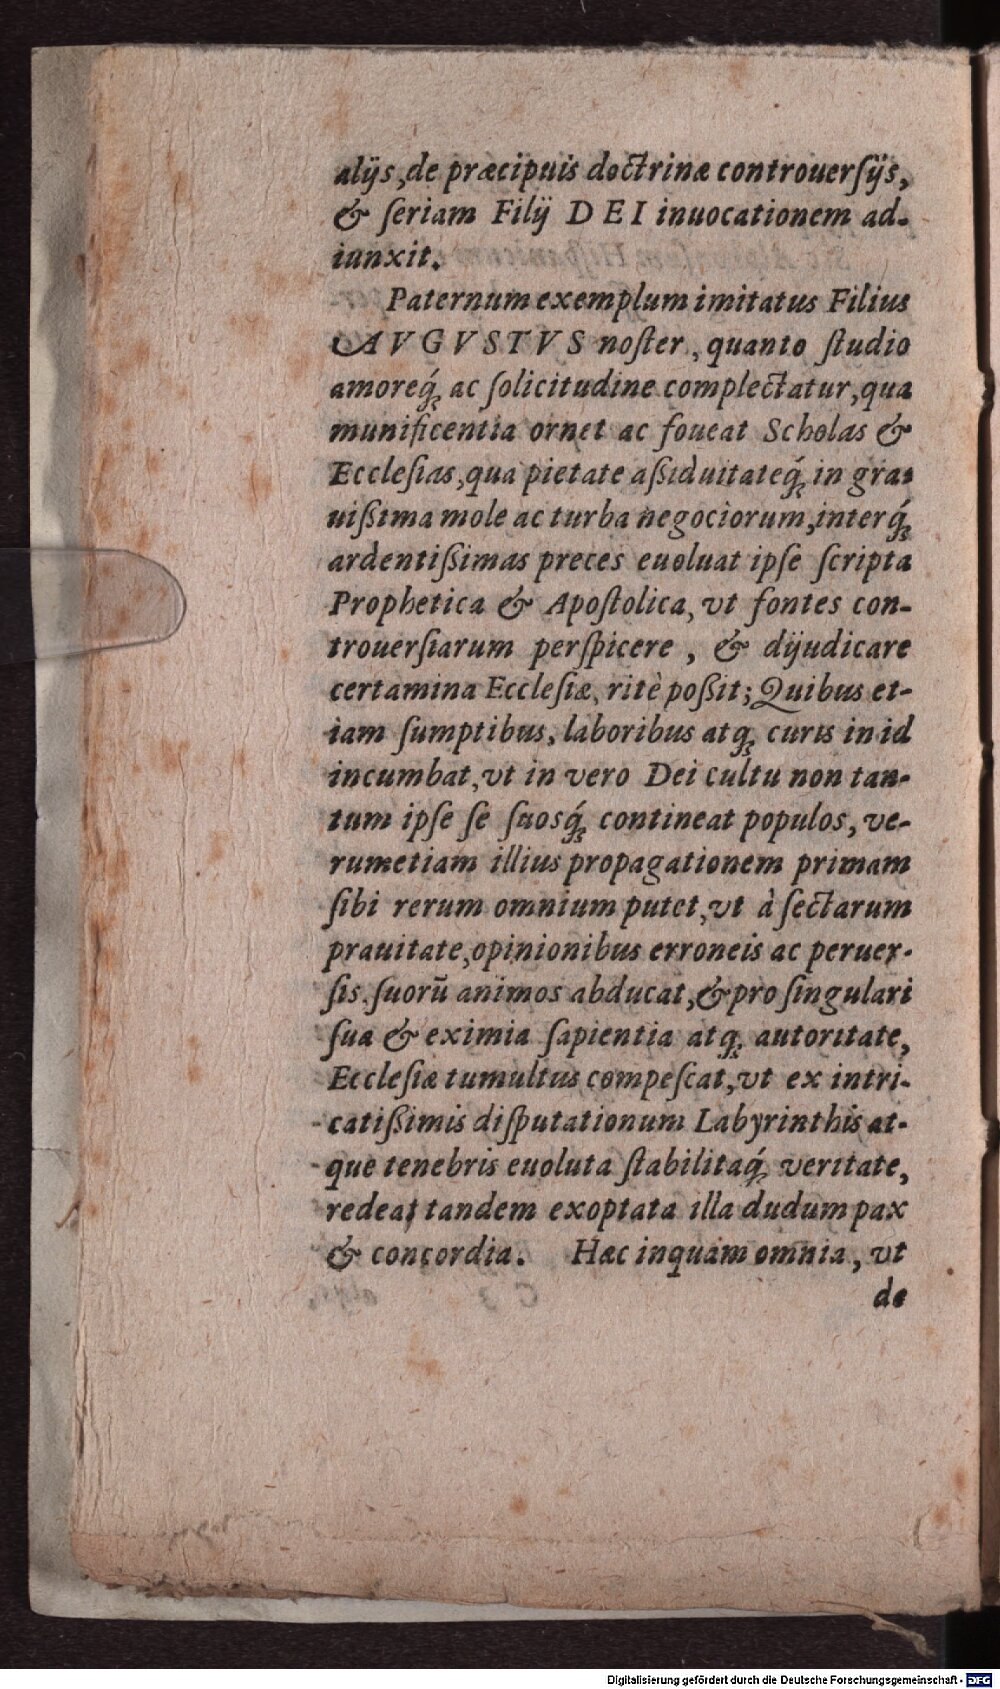 alijs, de præcipuis doctrinæ controuerſijs,
& ſeriam Filij DEI inuocationem ad-
iunxit.
Paternum exemplum imitatus Filius
AVGVSTVS noſter, quanto ſtudio
amoreq́ꝫ ac ſolicitudine complectatur, qua
munificentia ornet ac foueat Scholas &
Eccleſias, qua pietate aßiduitateq́ꝫ in gra-
uißima mole ac turba negociorum, interq́ꝫ
ardentißimas preces euoluat ipſe ſcripta
Prophetica & Apoſtolica, vt fontes con-
trouerſiarum perſpicere, & dijudicare
certamina Eccleſiæ, ritè poßit; Quibus et-
iam ſumptibus, laboribus atqꝫ curis in id
incumbat, vt in vero Dei cultu non tan-
tum ipſe ſe ſuosq́ꝫ contineat populos, ve-
rumetiam illius propagationem primam
ſibi rerum omnium putet, vt à ſectarum
prauitate, opinionibus erroneis ac peruer-
ſis, ſuorū animos abducat, & pro ſingulari
ſua & eximia ſapientia atqꝫ autoritate,
Eccleſiæ tumultus compeſcat, vt ex intri-
catißimis diſputationum Labyrinthis at-
que tenebris euoluta ſtabilitaq́ꝫ veritate,
redeat tandem exoptata illa dudum pax
& concordia. Hæc inquam omnia, vt
de
Digitalisierung gefördert durch die Deutsche Forschungsgemeinschaft - DFG